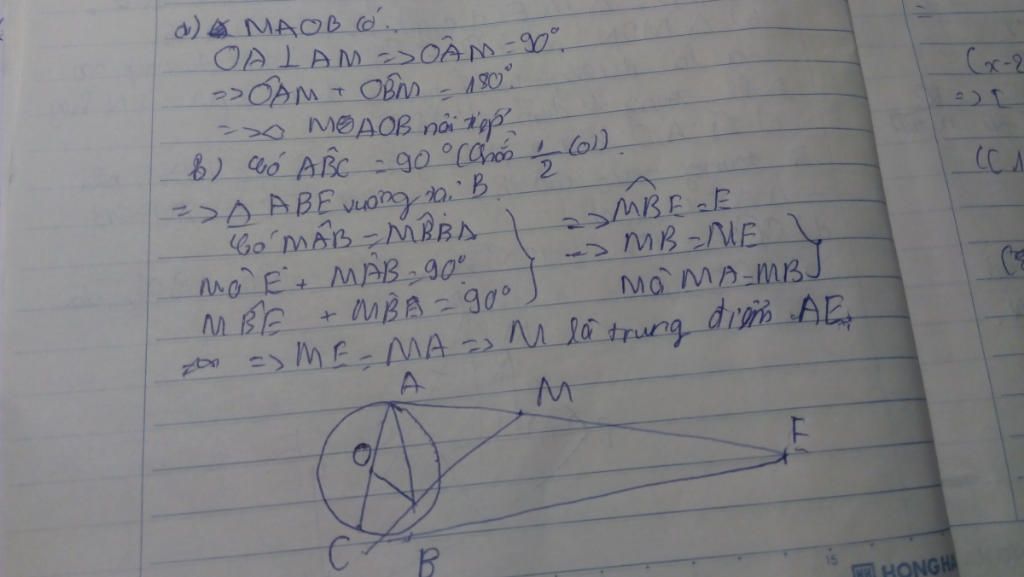 a) MAOB có.
OA ⊥ AM => OÂM = 90°.
=> OÂM + OB̂M = 180°.
=> MAOB nội tiếp
b) Có AB̂C = 90° (chắn 1/2 (O)).
=> Δ ABE vuông tại B.
Có MÂB = MB̂A
mà Ê + MÂB = 90°
MB̂E + MB̂A = 90°
=> MB̂E = E
=> MB = ME
mà MA = MB
=> ME = MA => M là trung điểm AE.
A
M
O
E
C
B
(x-2
=> [
(C 1
15
HONGHA